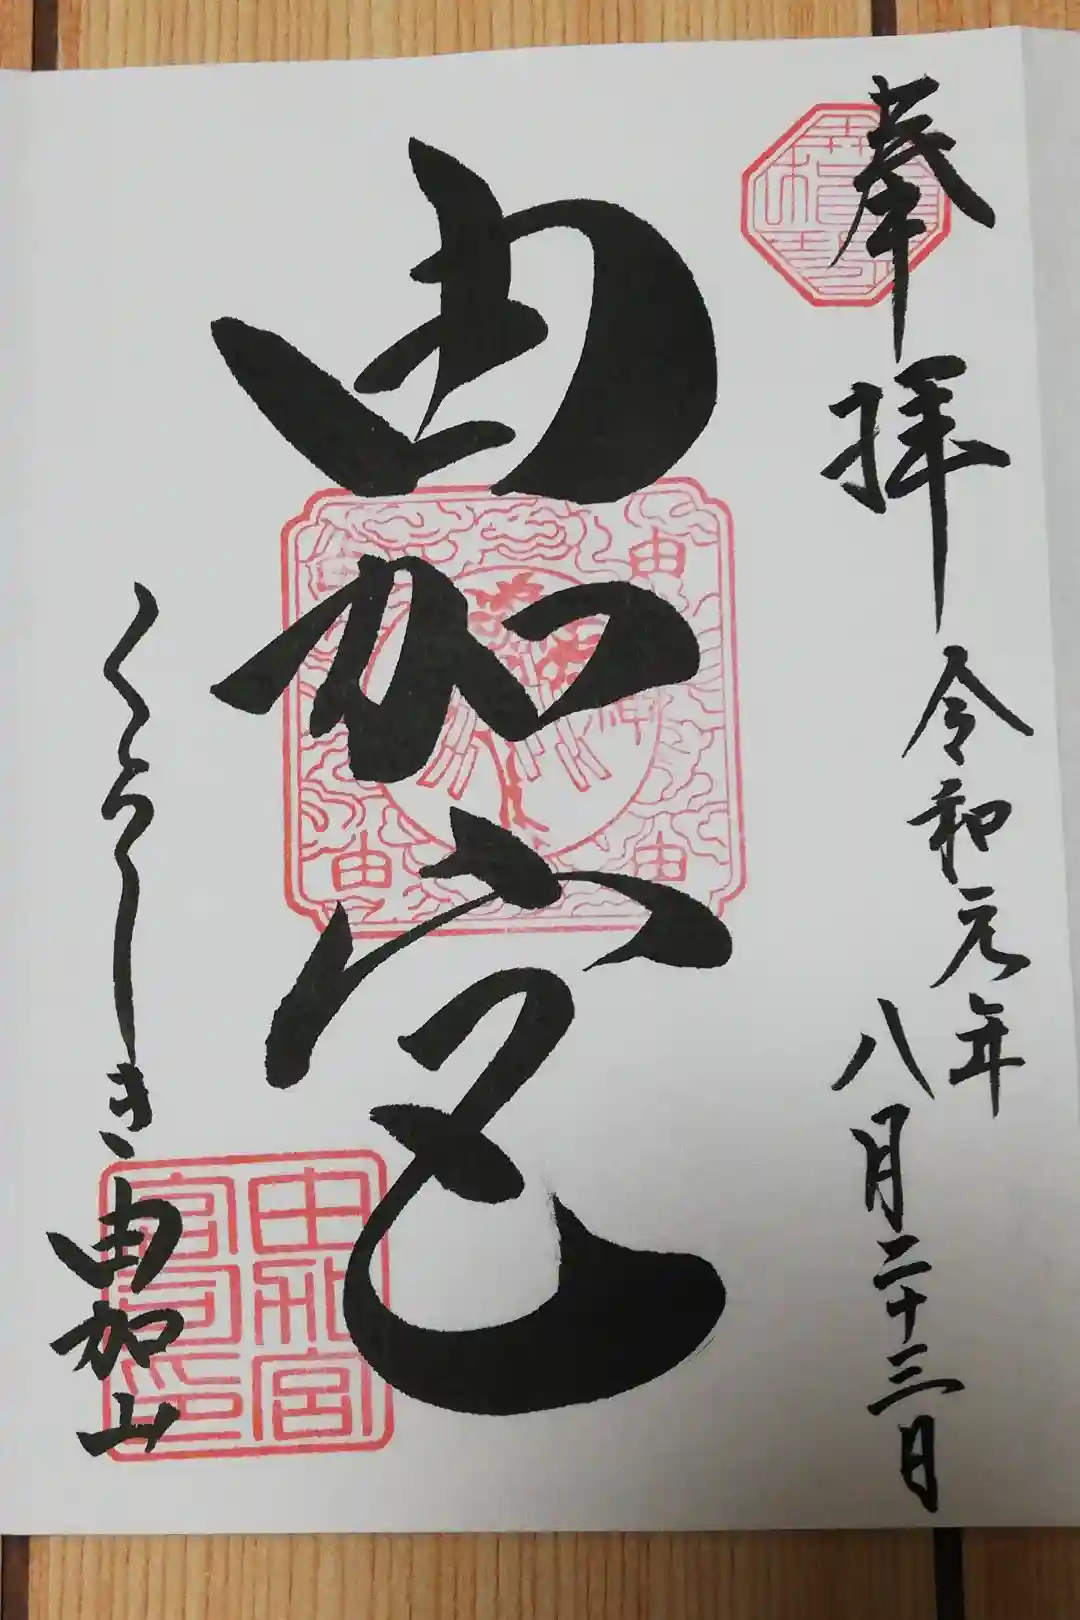 奉拝
令和元年
八月二十三日
由加宮
くらしき由加山
由加宮
宮司印
由
由
由